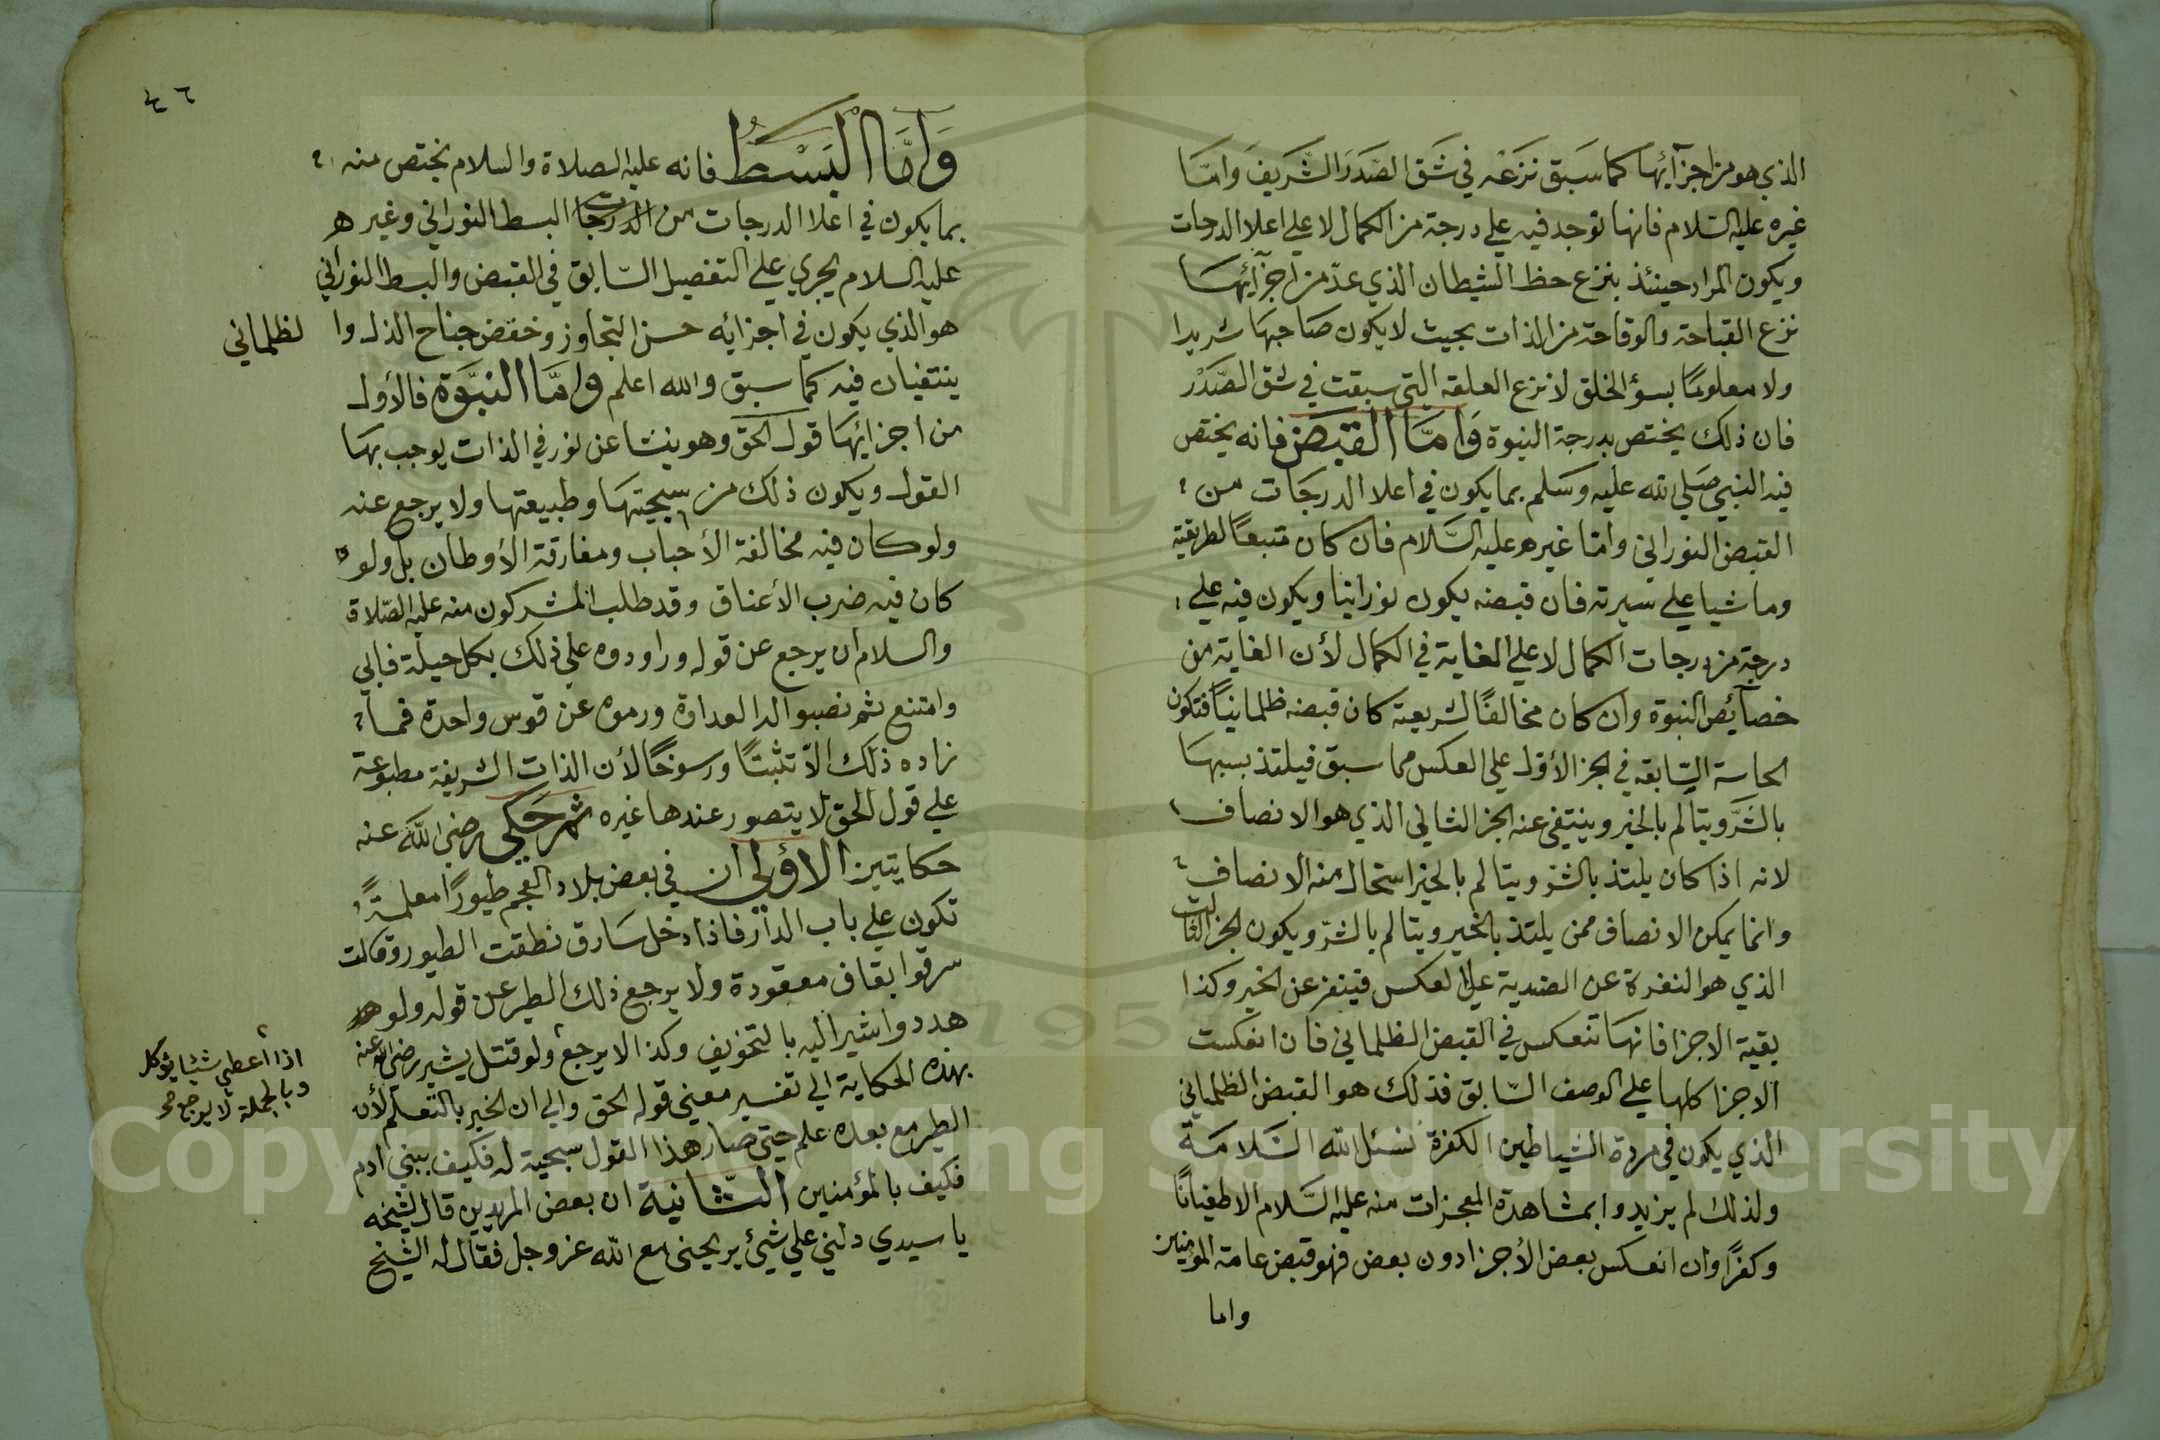 الذي هو من اجزآئها كما سَبَق نَزَعْه في شَق الصَّدَر الشَّريفَ وَامَّا
غيره عليه السّلام فانها توجد فيه علي درجة من الكمال لا علي اعلا الدرجات
ويكون المراد حينئذ بنزع حظ الشيطان الذي عدّ من اجزآئها
نزع القباحة والوقاحة من الذات بحيث لا يكون صَاحبهَا شريرا
ولا معلومًا بسوٴ الخلق لا نزع العلقه التي سبقت في شق الصَّدَرْ
فان ذلك يختص بدرجة النبوة وَامَّا القبَضَ فانه يختص
فيه النبي صَلي لله عليه وسَلم بما يكون في اعلا الدرجَات من
القبض النوراني وامّا غيره عليه السَّلام فان كان متبعًا لطريقية
وماشيا علي سيرته فان قبضه يكون نورانيا ويكون فيه علي
درجة من درجات الكمال لا علي الغاية في الكمال لأن الغاية من
خصآئص النبوة وان كان مخالفًا لشريعته كان قبضه ظلمانياً فتكون
الحاسة السَّابقه في الجز الأول علي العكس مما سبق فيلتذ بسببهَا
بالشَّرّ ويتالم بالخير وينتفي عنه الجز الثاني الذي هو الانصاف
لانه اذا كان يلتذ بالشرّ ويتالم بالخير استحال منه الانصاف
وانما يمكن الانصاف ممن يلتذ بالخير ويتالم بالشرّ ويكون الجز الثالث
الذي هو النفرة عن الضدية علي العكس فينفر عن الخير وكذا
بقية الاجزا فانها تنعكس في القبض الظلماني فان انعكست
الاجزا كلها علي الوصف السّابق فذلك هو القبض الظلماني
الذي يكون في مردة الشياطين الكفرة نسئل الله السَّلامَة
ولذلك لم يزيدوا بمشاهدة المعجزات منه عليه السَّلام الا طغيانًا
وكفرًا وان انعكس بعض الأجزا دون بعض فهو قبض عامة المومنين
واما
٤٦
وَأمَّا البَسْطُ فانه عليه الصلاة والسلام يختص منه
بما يكون في اعلا الدرجات من الدرجات البسط النوراني وغيره
عليه السلام يجري علي التفصيل السّابق في القبض والبسط النوراني
هو الذي يكون في اجزائه حسن التجاوز وخفض جناح الذل وا لظلماني
ينتفيان فيه كما سبق والله اعلم وامَّا النبوَّة فالأول
من اجزائهَا قول الحق وهو ينشا عن نور في الذات يوجب بهَا
القول ويكون ذلك من سجيتهَا وطبيعتها ولا يرجع عنه
ولو كان فيه مخالفة الأحباب ومفارقة الأوطان بل ولو
كان فيه ضرب الأعناق وقد طلب المشركون منه عليه الصّلاة
والسلام ان يرجع عن قوله وراودوه علي ذلك بكل حيلة فابي
وامتنع ثم نصبوا له العداوة ورموه عن قوس واحدة فما
زاده ذلك الاّ تثبتًا ورسوخًا لأن الذات الشريفة مطبوعة
علي قول الحق لا يتصور عندها غيره ثم حَكي رضي الله عنه
حكايتين الأولي ان في بعض بلاد العجم طيورًا معلمةً
تكون علي باب الدّار فاذا دخل سَارق نطقت الطيور وقالت
سرقوا بقاف معقودة ولا يرجع ذلك الطير عن قوله ولو
هدد واشير اليه بالتخويف وكذا لا يرجع ولو قتل يشير رضي الله عنه
اذا اعطي شيئا يوكل
وبالجملة لا يرجع صح
بهذه الحكاية الي تفسير معني قوله الحق والي ان الخير بالتعلم لأن
الطير مع بعده علم حتي صار هذا القول سجية له فكيف ببني ادم
فكيف بالمؤمنين الثّانية ان بعض المريدين قال لشيخه
يا سيدي دلني علي شيئ يريحني مع الله عز وجل فقال له الشيخ
Copyright © King Saud University
1957